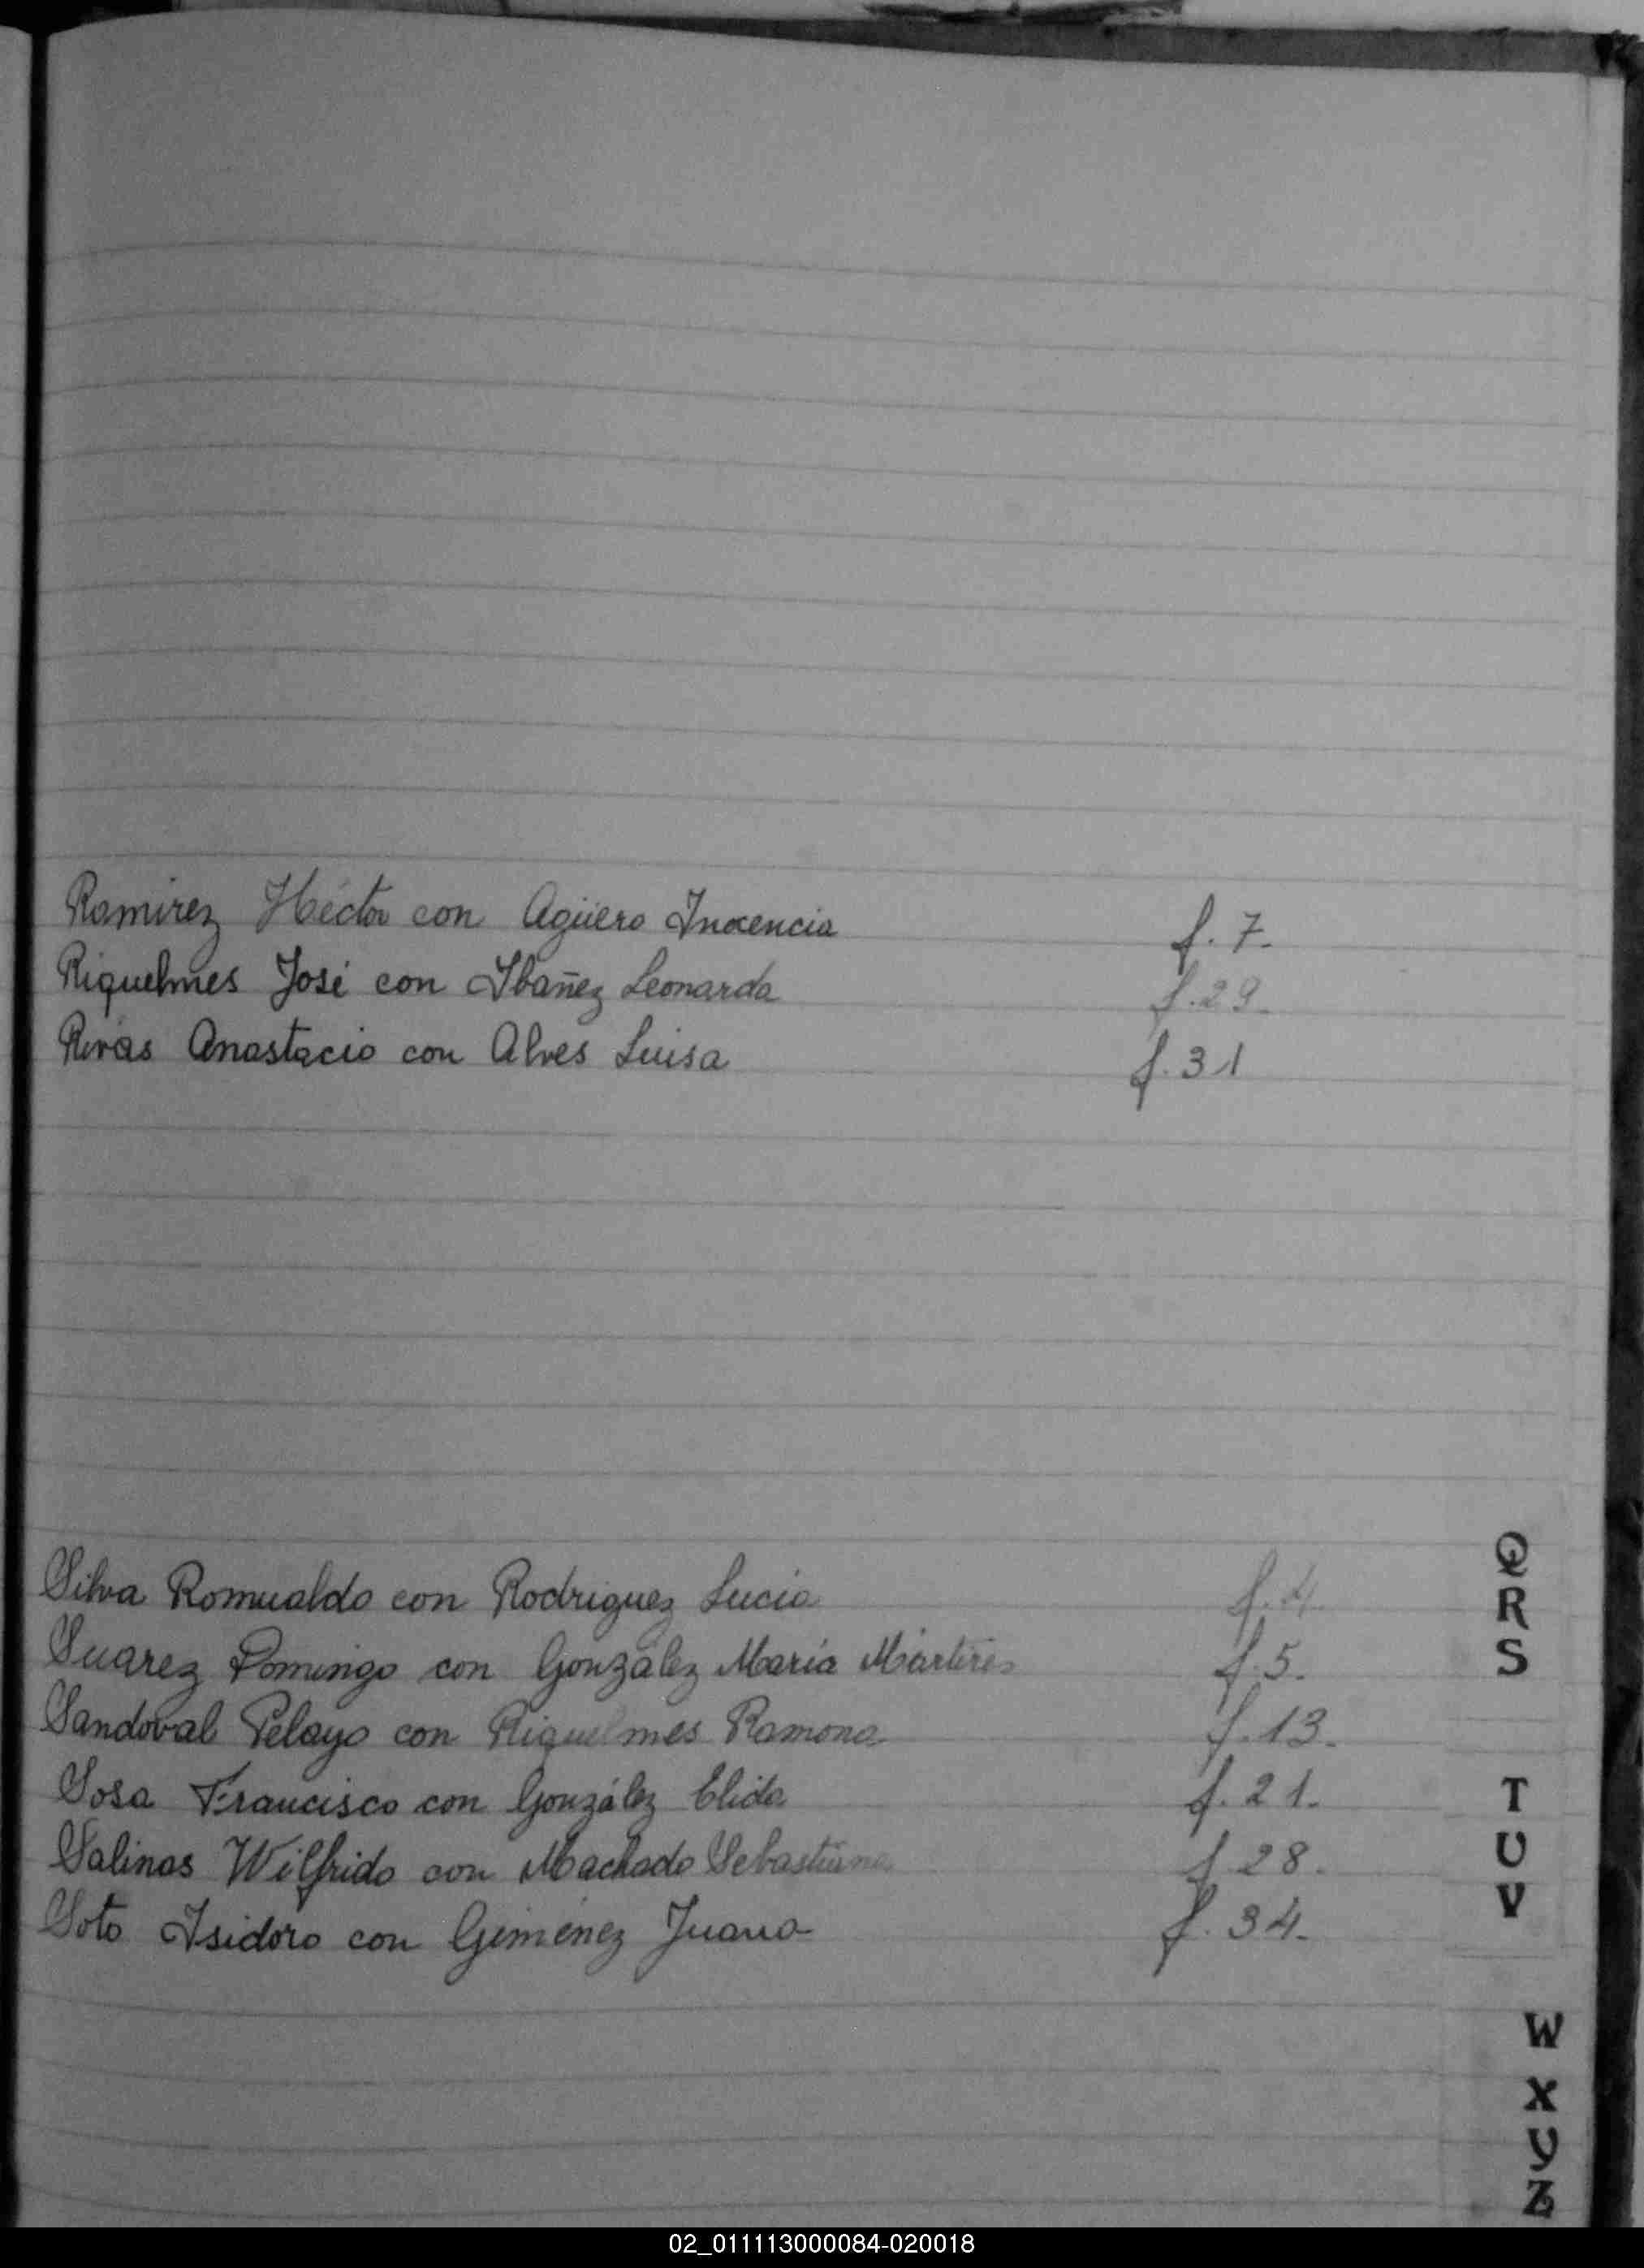 Ramirez Héctor con Agüero Inocencia f. 7.
Riquelmes José con Ibañez Leonarda f. 29.
Rivas Anastacio con Alves Luisa f. 31
Silva Romualdo con Rodriguez Lucia f. 4.
Suarez Domingo con González María Mártires f. 5.
Sandoval Pelayo con Riquelmes Ramona f. 13.
Sosa Francisco con González Elida f. 21.
Salinas Wilfrido con Machado Sebastiana f. 28.
Soto Isidoro con Giménez Juana f. 34.
Q
R
S
T
U
V
W
X
Y
Z
02_011113000084-020018